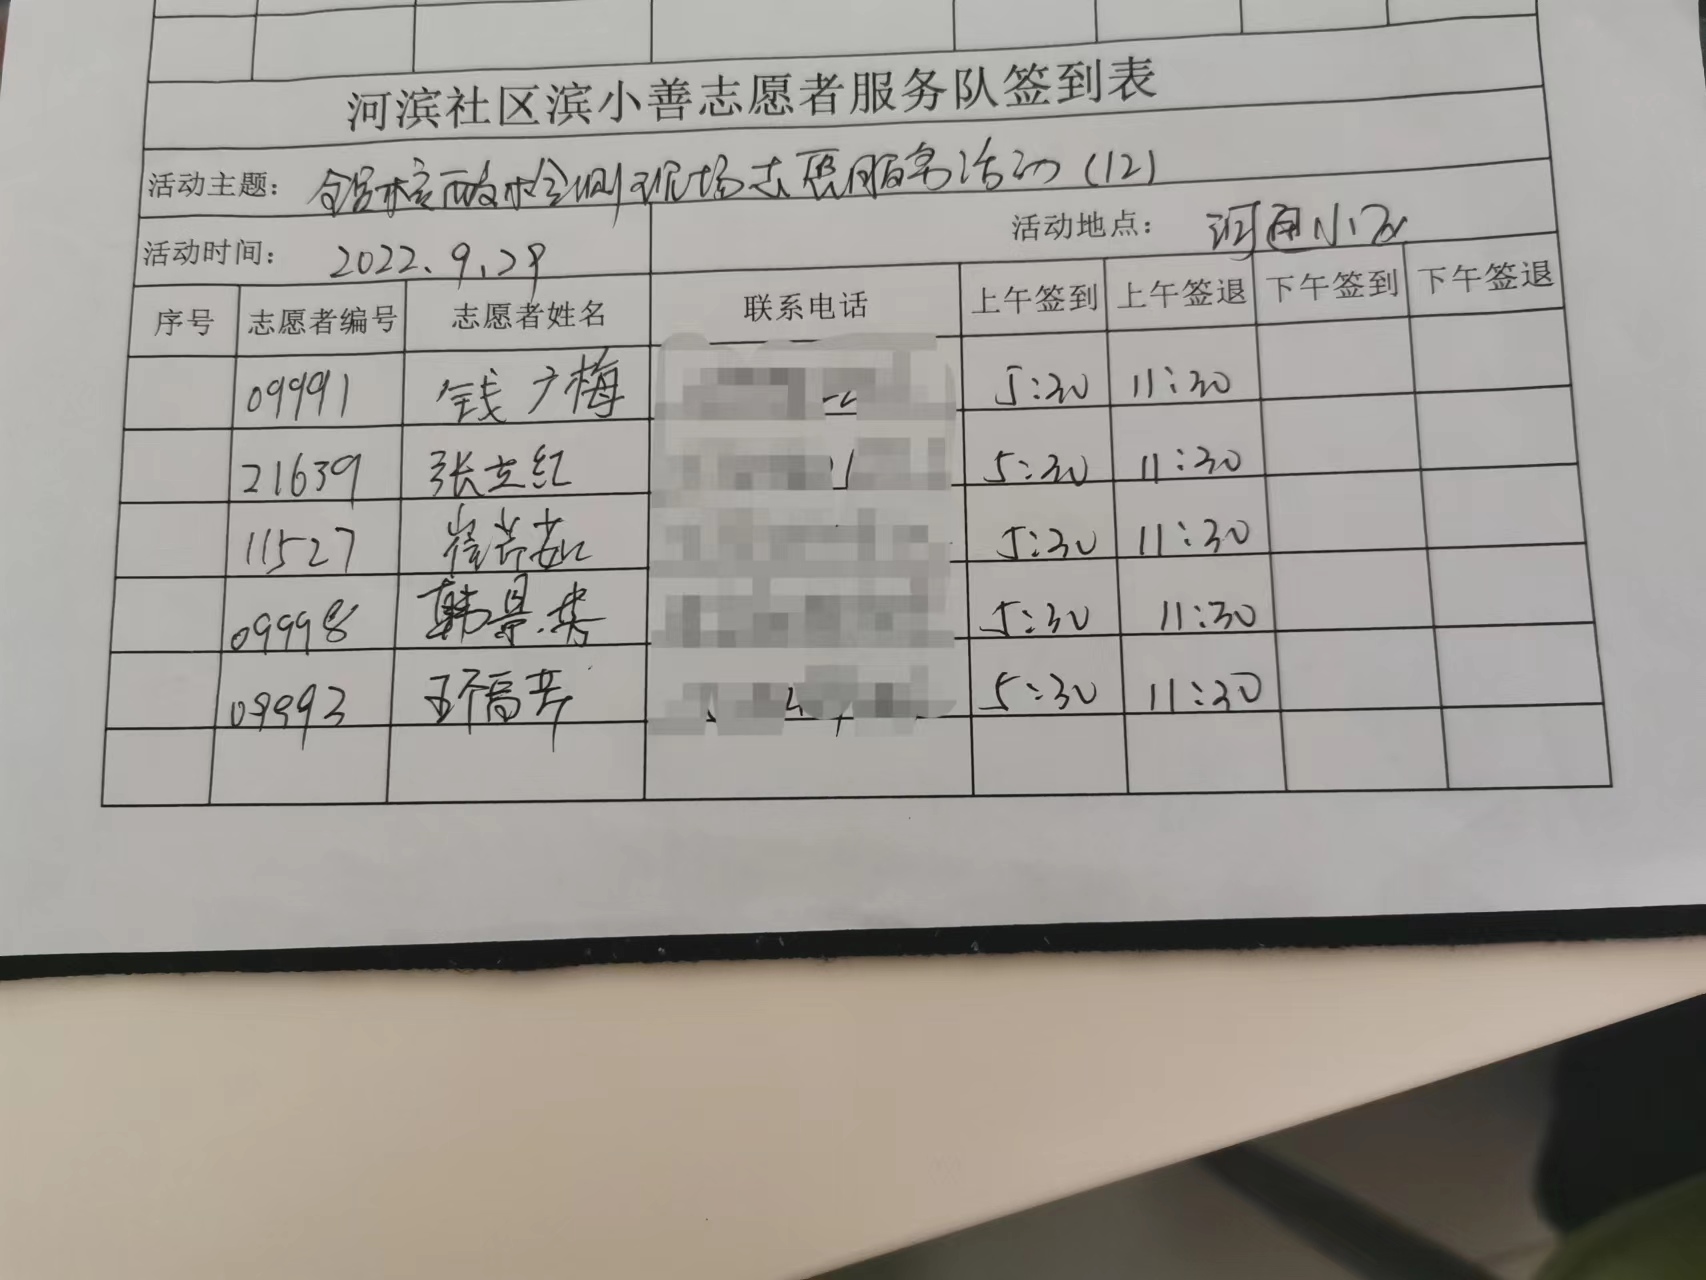 河滨社区滨小善志愿者服务队签到表
活动主题： 全员核酸检测现场志愿服务活动（12）
活动时间： 2022.9.29 活动地点： 河西小区
序号 志愿者编号 志愿者姓名 联系电话 上午签到 上午签退 下午签到 下午签退
09991 钱广梅 5:30 11:30
21639 张立红 5:30 11:30
11527 崔芹茹 5:30 11:30
09998 韩景英 5:30 11:30
09993 5:30 11:30